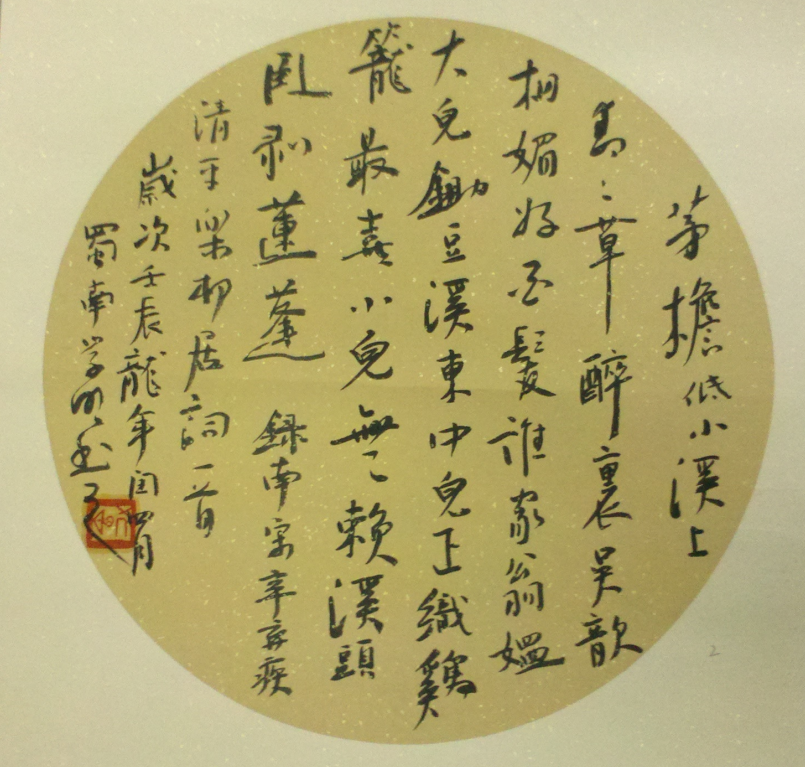 茅檐低小溪上
青〻草醉裏吳歆
相媚好白髮誰家翁媼
大兒鋤豆溪東中兒正織雞
籠最喜小兒無賴溪頭
卧剥蓮蓬 録南宋辛弃疾
清平樂村居詞一首
歲次壬辰龍年閏四月
蜀南学明
2